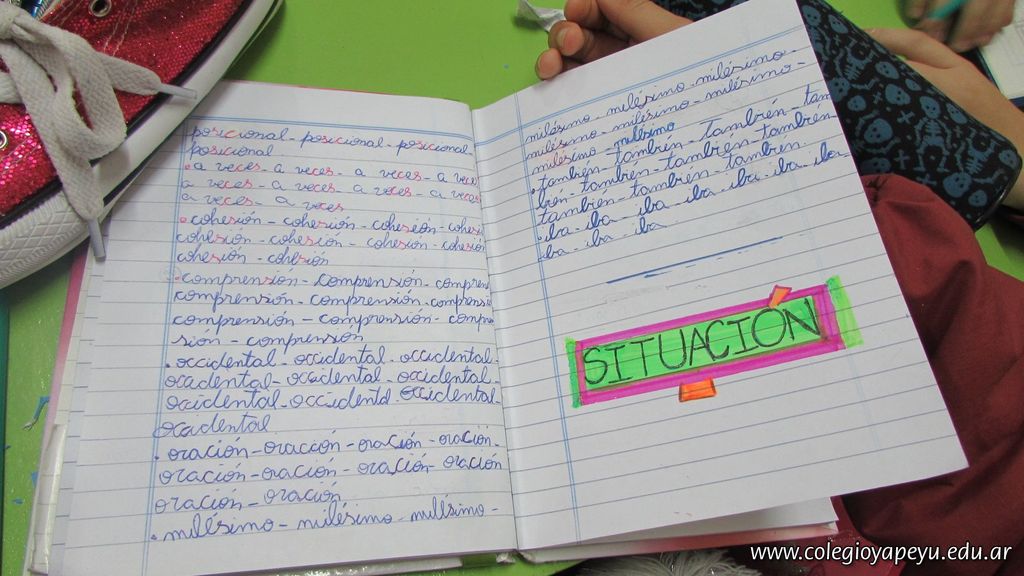 posicional - posicional - posicional
posicional
. a veces - a veces - a veces - a veces
a veces - a veces - a veces - a veces
a veces - a veces
. cohesión - cohesión - cohesión - cohesión
cohesión - cohesión - cohesión - cohesión
cohesión - cohesión
. comprensión - comprensión - compren
comprensión - comprensión - comprensión
comprensión - comprensión - compren
sión - comprensión
. occidental - occidental - occidental -
occidental - occidental - occidental -
occidental - occidental occidental
occidental
. oración - oración - oración - oración -
oración - oración - oración - oración
oración - oración
. milésimo - milésimo - milésimo -
milésimo - milésimo - milésimo -
milésimo - milésimo - milésimo -
milésimo - milésimo
. también - también - también - tam
bién - también - también - también
también - también - también.
. iba - iba - iba - iba - iba - iba -
iba - iba - iba
SITUACIÓN
www.colegioyapeyu.edu.ar